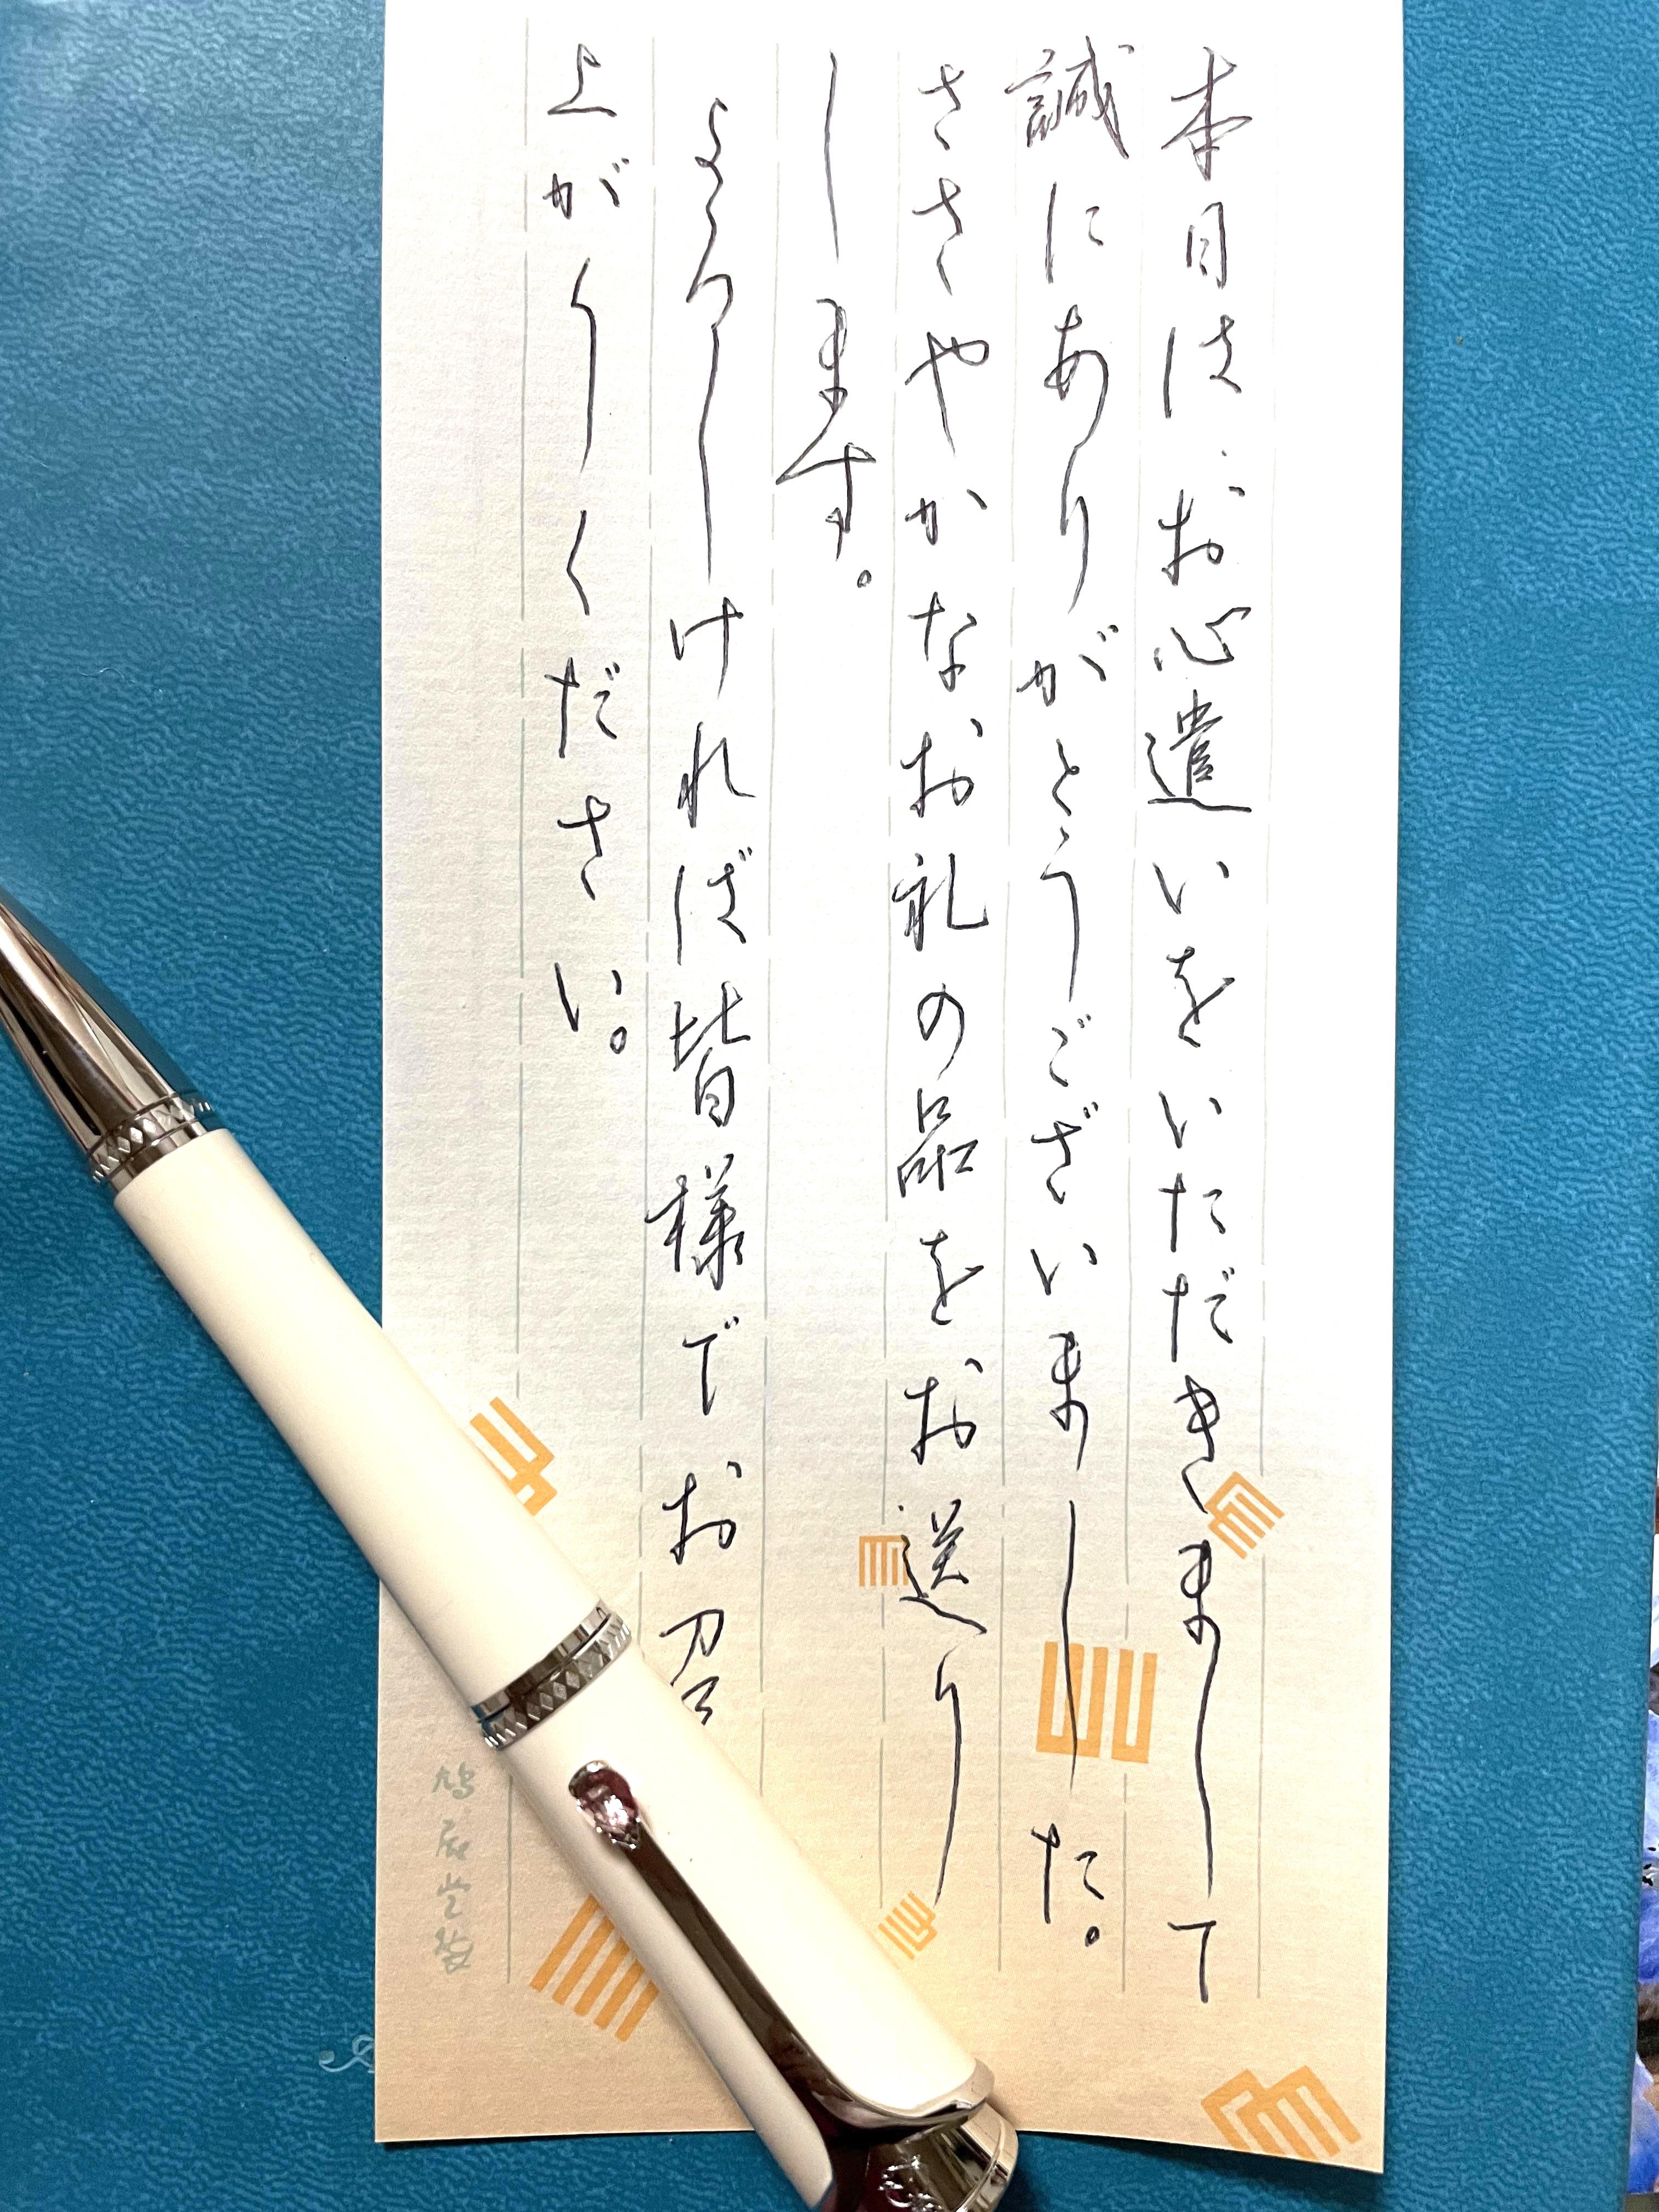 本日は、お心遣いをいただきまして
誠にありがとうございました。
ささやかなお礼の品をお送り
します。
よろしければ皆様でお召
上がりください。
鳩居堂製